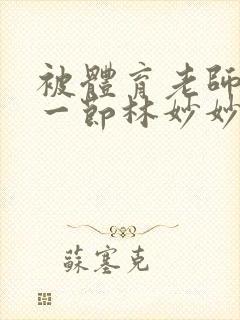 被體育老師
一節林妙妙
蘇塞克